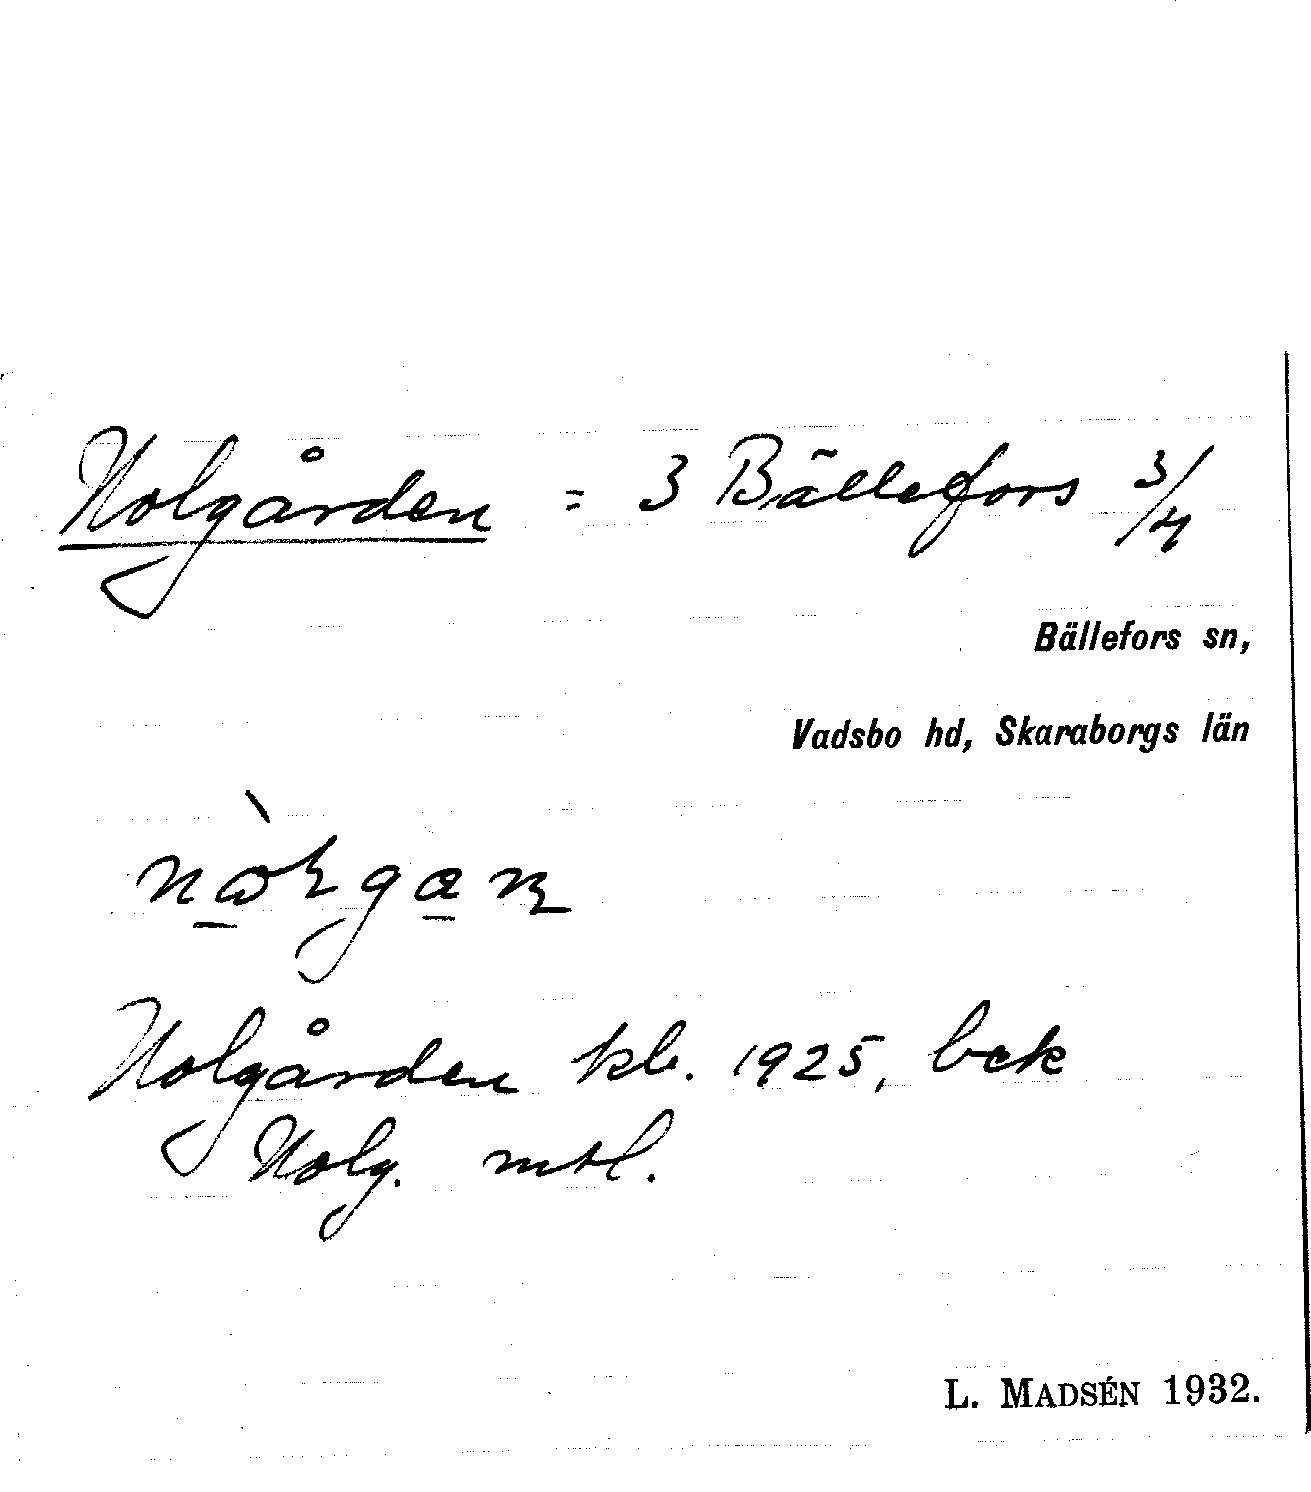 Nolgården = 3 Bällefors 3/4
Bällefors sn,
Vadsbo hd, Skaraborgs län
Nolgården kb. 1925, bek
Nolg. mtl.
L. MADSÉN 1932.